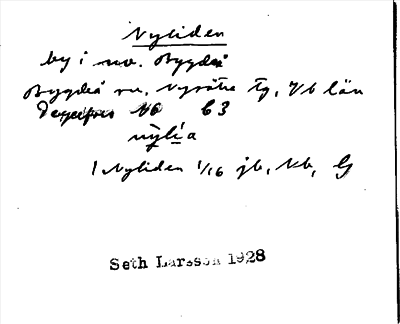 Nyliden
by i nv. Bygdeå
Bygdeå sn, Nysätra tg, Vb län
No 63
nýlia
1 Nyliden 1/16 jb, kb,
Seth Larsson 1928